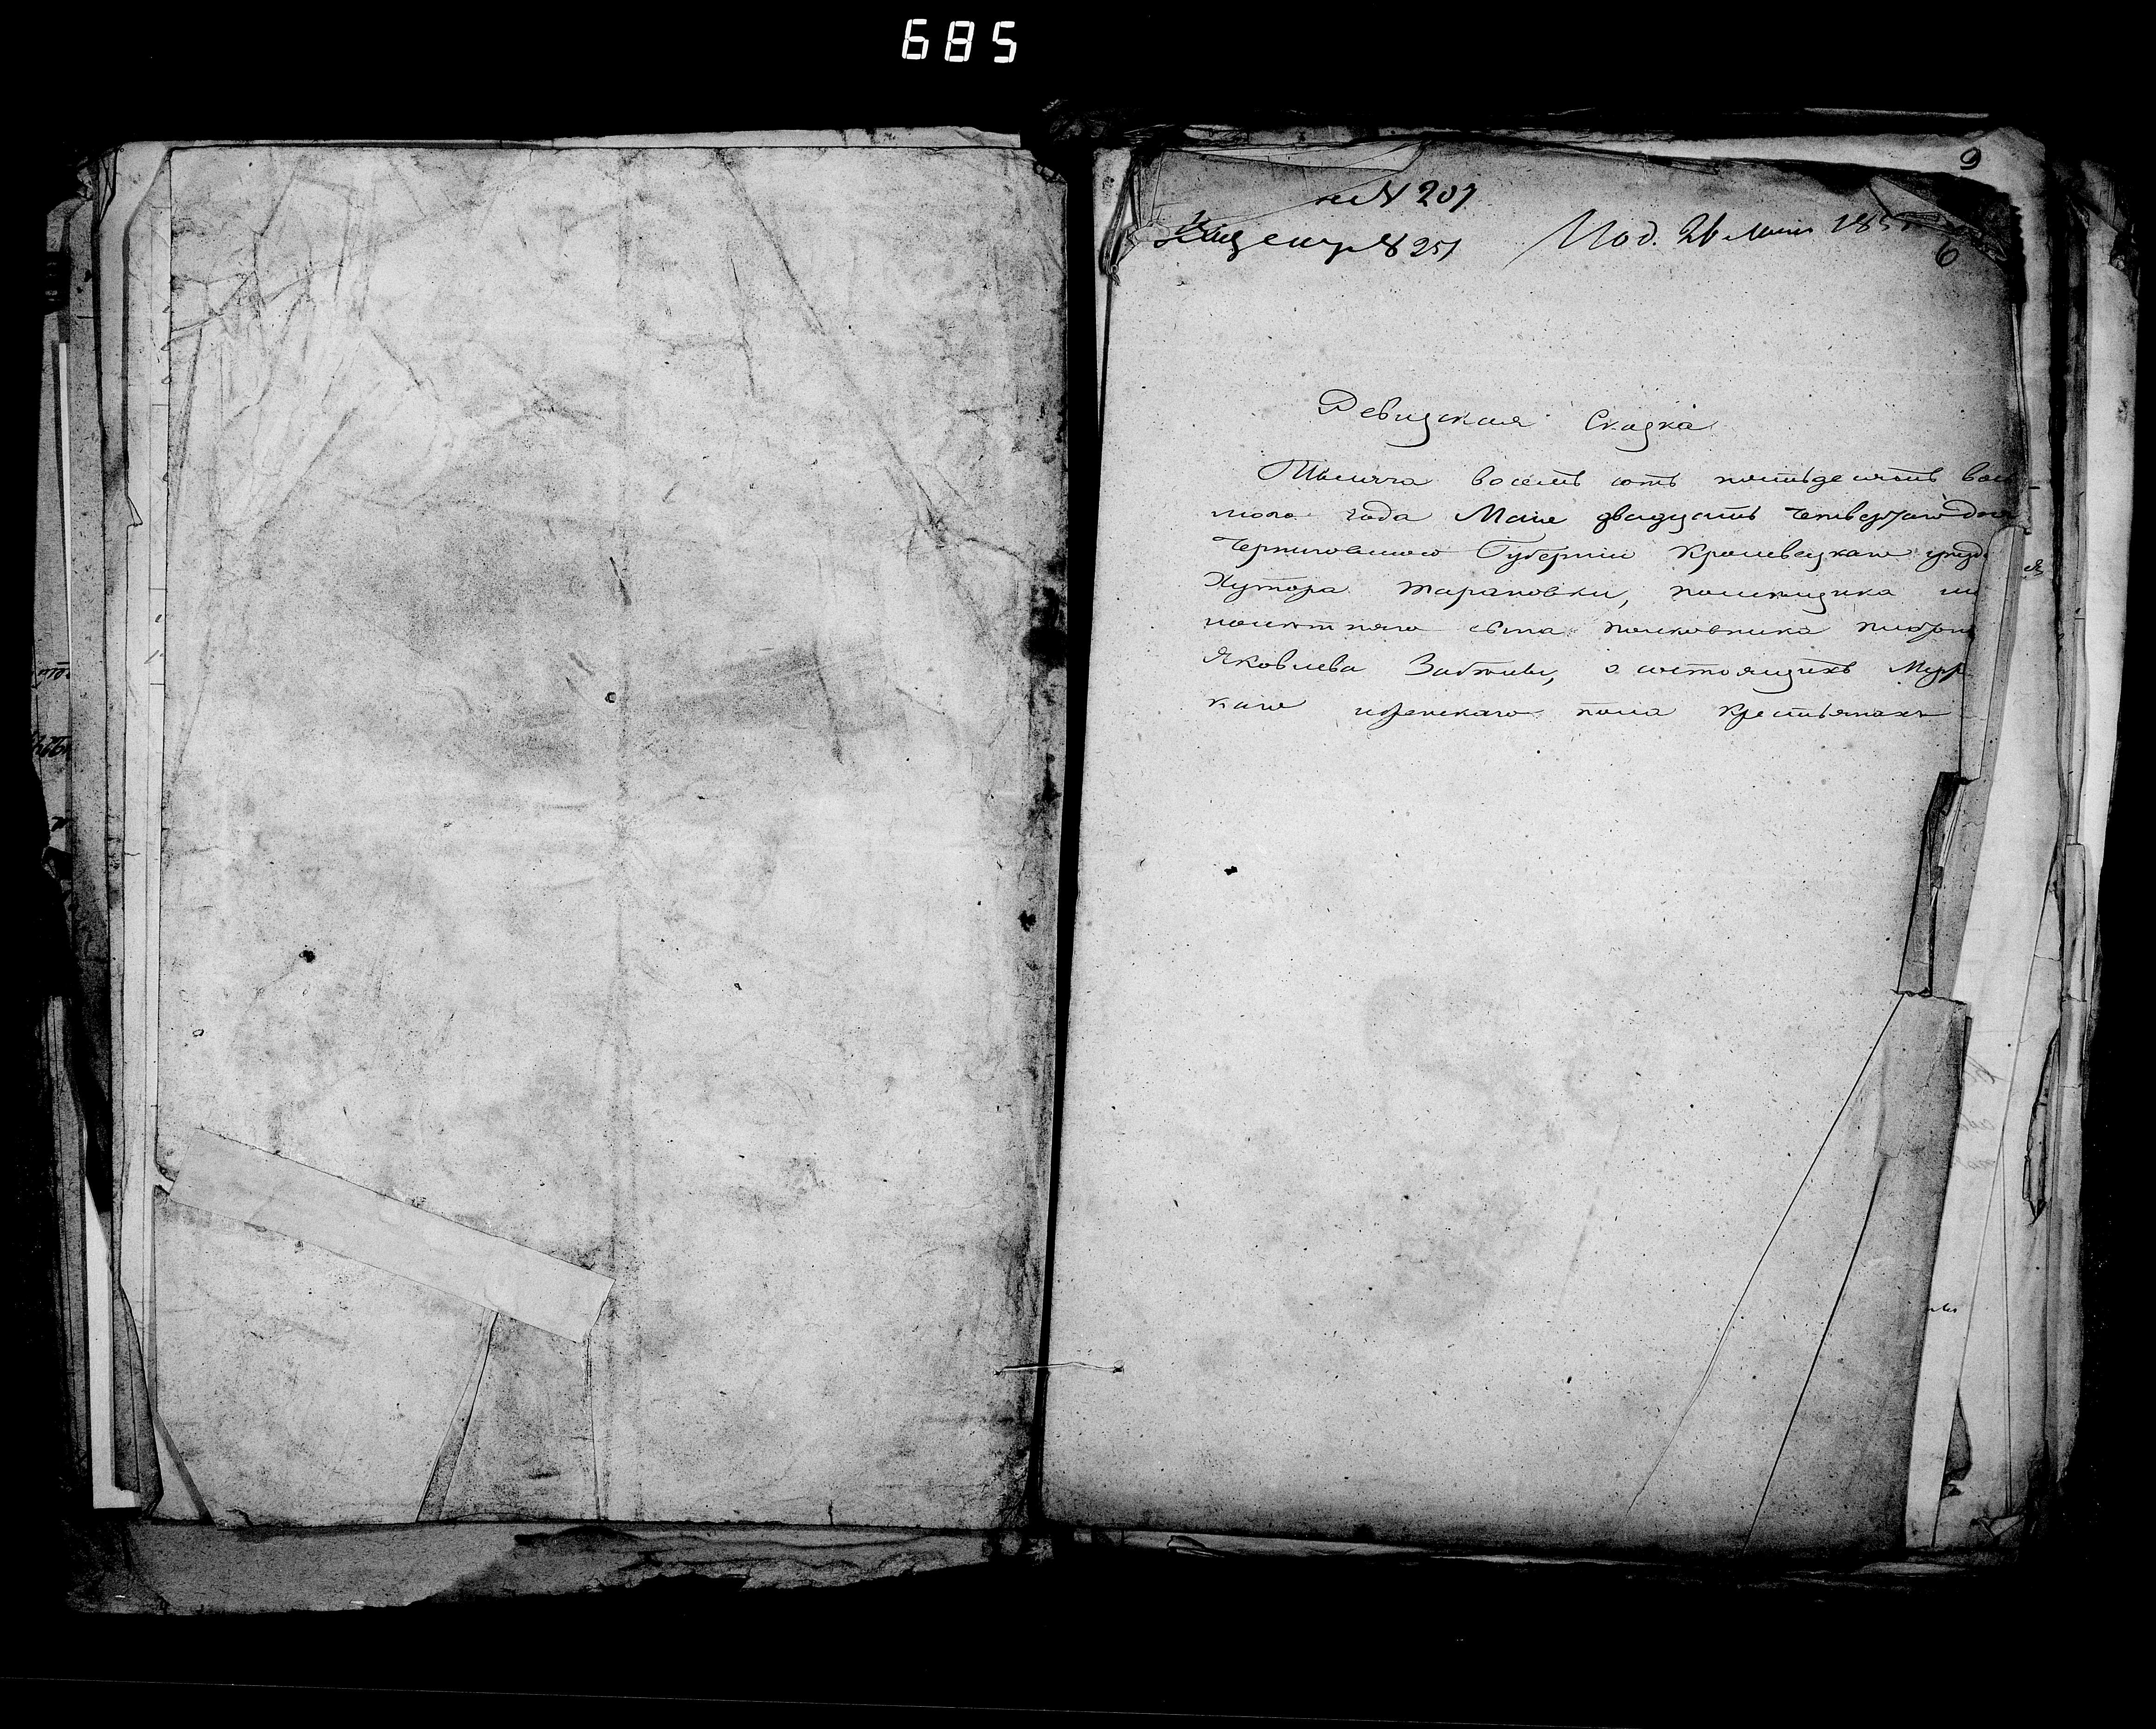 685
9
№ 207
№ 251 Под. 26 Мая 185
6
Ревизская Сказка
Тысяча восемь сотъ пятьдесятъ вось
маго года Мая двадцать четвертаго дня
Черниговской Губерніи Кролевецкаго уезда
Хутора Тарановки, помещика
полковника
Яковлева Забтелы, о состоящихъ Муж
каго и женскаго пола крестьянахъ